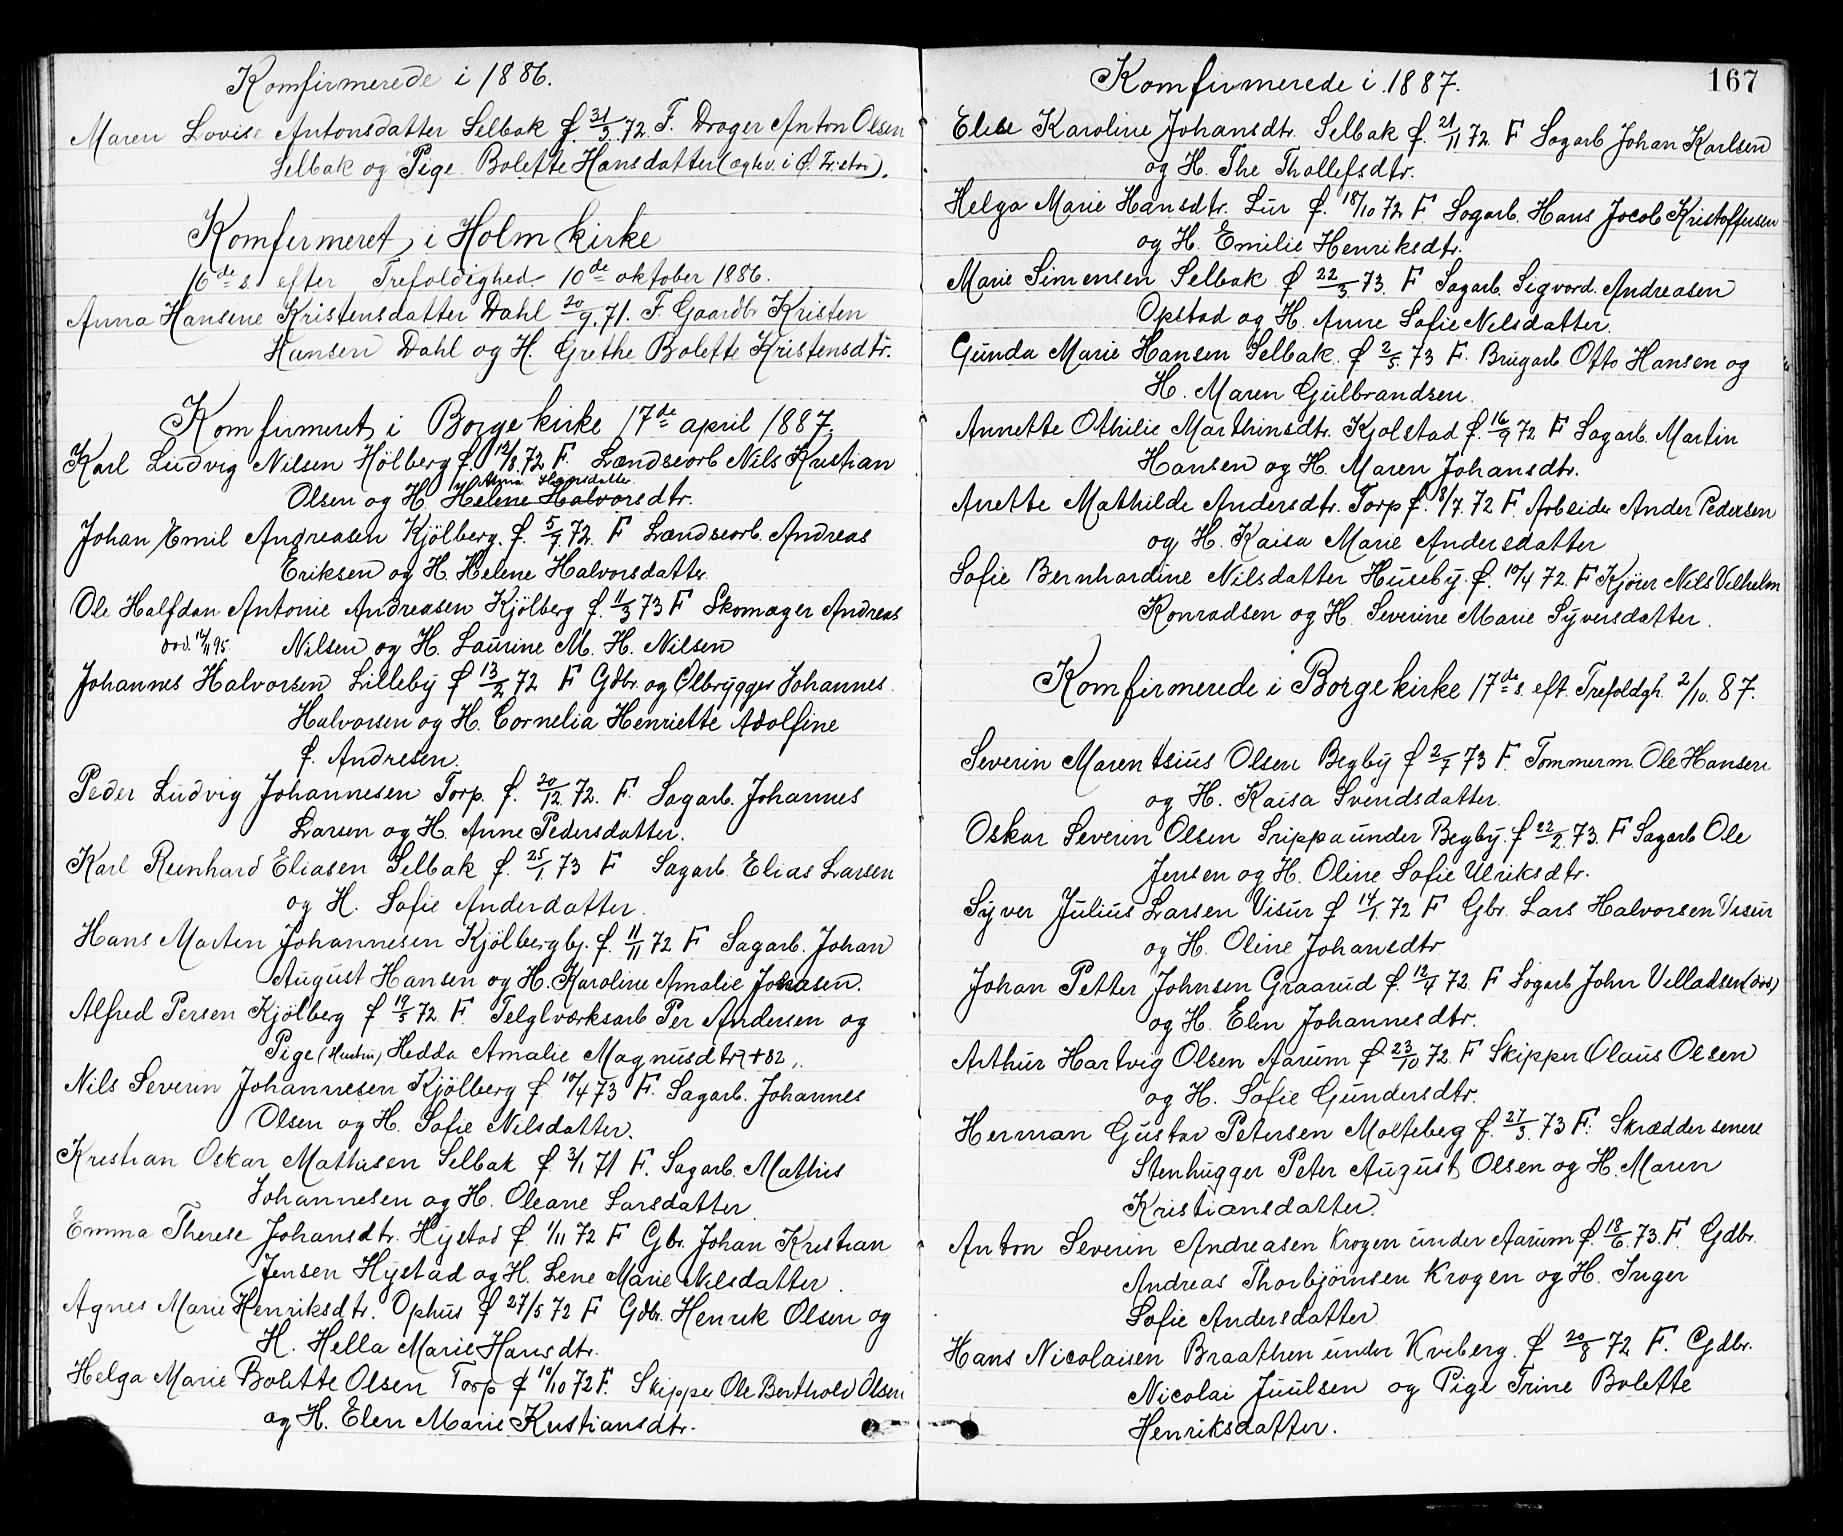 Komfirmerede i 1886.
Maren Lovise Antonsdatter Selbak f. 31/3 72. F. Drager Anton Olsen
Selbak og Pige Bolette Hansdatter
Komfirmeret i Holm kirke
16de s. efter Trefoldighed 10de oktober 1886.
Anna Hansene Kristensdatter Dahl 20/9. 71. F. Gaardbr. Kristen
Hansen Dahl og H. Grethe Bolette Kristensdtr.
Komfirmeret i Borge kirke 17de april 1887.
Karl Ludvig Nilsen Hölberg f. 12/8. 72 F. Landseorb Nils Kristian
Olsen og H. Helene Halvorsdtr.
Johan Emil Andreasen Kjölberg. f. 5/9 72. F Landseorb. Andreas
Eriksen og H. Helene Halvorsdatter.
Ole Halfdan Antonie Andreasen Kjölberg f. 11/3 73 F Skomager Andreas
död. 12/11 95. Nilsen og H. Laurine M. H. Nilsen
Johannes Halvorsen Lilleby f 13/2 72 F Gdbr. og Ölbrygger Johannes
Halvorsen og H. Cornelia Henriette Adolfine
f. Andresen.
Peder Ludvig Johannesen Torp. f. 20/12 72. F. Sagarb. Johannes
Larsen og H. Anne Pedersdatter.
Karl Reinhard Eliasen Selbak f. 25/1. 73 F Sagarb. Elias Larsen
og H. Sofie Andersdatter.
Hans Marten Johannesen Kjölbergbj. f. 11/11 72 F Sagarb. Johan
August Hansen og H. Karoline Amalie Johasen.
Alfred Persen Kjölberg f 19/5 72 F. Telglværksarb Per Andersen og
Pige Hedda Amalie Magnusdtr + 82.
Nils Severin Johannesen Kjölberg f. 10/4 73 F. Sagarb. Johannes
Olsen og H. Sofie Nilsdatter.
Kristian Oskar Mathisen Selbak f. 3/1 71 F. Sagarb. Mathis
Johannesen og H. Oleane Larsdatter
Emma Therese Johansdtr. Hystad f. 1/11 72 F Gbr. Johan Kristian
Jensen Hystad og H. Lene Marie Nilsdatter.
Agnes Marie Henriksdtr. Ophus f 27/5 72 F Gdbr. Henrik Olsen og
H. Hella Marie Hansdtr.
Helga Marie Bolette Olsen Torp f 10/10 72 F. Skipper Ole Berthold Olsen
og H. Elen Marie Kristiansdtr.
Komfirmerede i 1887. 167
Elise Karoline Johansdtr. Selbak f. 21/11 72 F Sagarb Johan Karlsen
og H. The Thollefsdtr.
Helga Marie Hansdtr. Lur f. 18/10 72 F. Sagarb. Hans Jacob Kristoffersen
og H. Emilie Henriksdtr.
Marie Simensen Selbak f 22/3 73. F Sagarb. Sigvard. Andreasen
Opstad og H. Anne Sofie Nilsdatter.
Gunda Marie Hansen Selbak. f 2/5. 73 F. Brugarb. Otto Hansen og
H. Maren Gulbrandsen.
Annette Othilie Marthinsdtr. Kjolstad f. 16/9 72 F Sagarb. Martin
Hansen og H. Maren Johansdtr.
Anette Mathilde Andersdtr. Torp f. 8/7. 72 F. Arbeider Ander Pedersen
og H. Kaisa Marie Andersdatter
Sofie Bernhardine Nilsdatter Huseby f. 10/4 72. F Kjörer Nils Vilhelm
Konradsen og H. Severine Marie Syversdatter.
Komfirmerede i Borge kirke 17de s. eft. Trefoldgh. 2/10. 87.
Severin Marentsius Olsen Begby f 2/7 73 F. Tømmerm. Ole Hansen
og H. Kaisa Svendsdatter.
Oskar Severin Olsen Srippa under Begby. f 22/2. 73. F Sagarb Ole
Jensen og H. Oline Sofie Ulriksdtr.
Syver Julius Larsen Visur f 14/1. 72 F Gbr. Lars Halvorsen Visur
og H. Oline Johansdtr
Johan Petter Johnsen Graarud f. 12/4 72. F Sagarb John Velladsen (död)
og H. Elen Johannesdtr.
Arthur Hartvig Olsen Aarum f 23/10 72. F Skipper Olaus Olsen
og H. Sofie Gundersdtr.
Herman Gustav Petersen Molteberg f. 27/3. 73 F. Skrædder senere
Stenhugger Peter August Olsen og H. Maren
Kristiansdatter.
Anton Severin Andreasen Krogen under Aarum f. 18/6. 73. F. Gdbr.
Andreas Thorbjörnsen Krogen og H. Inger
Sofie Andersdatter.
Hans Nicolaisen Braathen under Kviberg. f 20/8 72 F. Gdbr.
Nicolai Juulsen og Pige Trine Bolette
Henriksdatter.